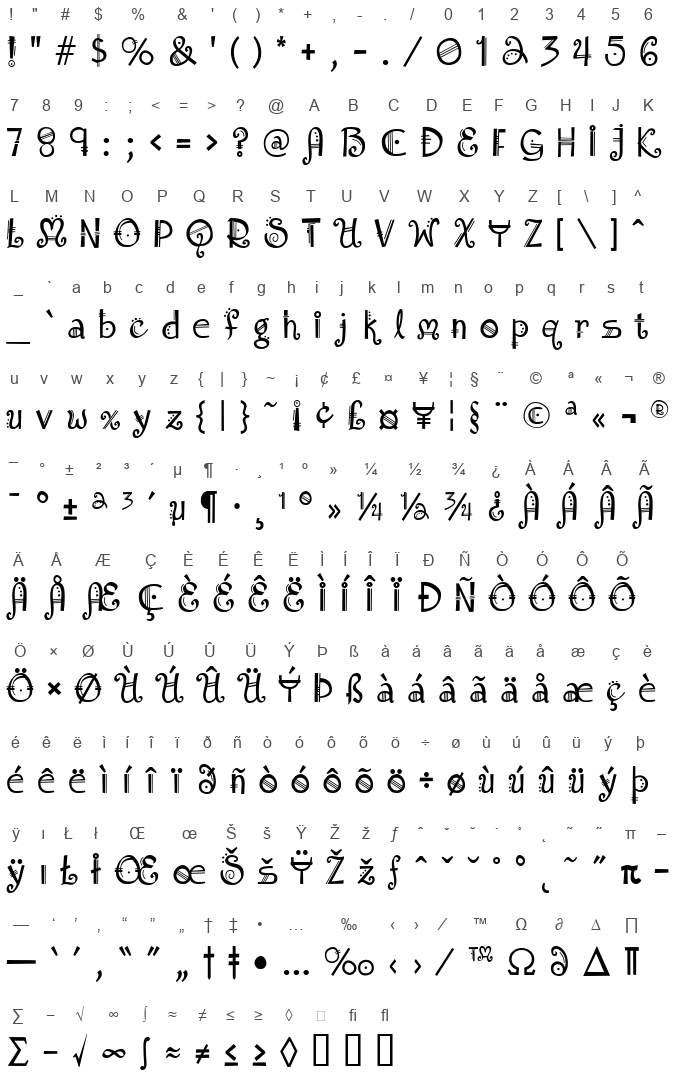 ! " # $ % & ' ( ) * + , - . / 0 1 2 3 4 5 6
! " # $ % & ' ( ) * + , - . / 0 1 2 3 4 5 6
7 8 9 : ; < = > ? @ A B C D E F G H I J K
7 8 9 : ; < = > ? @ A B C D E F G H I J K
L M N O P Q R S T U V W X Y Z [ \ ] ^
L M N O P Q R S T U V W X Y Z [ \ ] ^
_ ` a b c d e f g h i j k l m n o p q r s t
_ ` a b c d e f g h i j k l m n o p q r s t
u v w x y z { | } ~ ¡ ¢ £ ¤ ¥ ¦ § ¨ © ª « ¬ ®
u v w x y z { | } ~ ¡ ¢ £ ¤ ¥ ¦ § ¨ © ª « ¬ ®
¯ ° ± ² ³ ´ µ ¶ · ¸ ¹ º » ¼ ½ ¾ ¿ À Á Â Ã
¯ ° ± ² ³ ´ µ ¶ · ¸ ¹ º » ¼ ½ ¾ ¿ À Á Â Ã
Ä Å Æ Ç È É Ê Ë Ì Í Î Ï Ð Ñ Ò Ó Ô Õ
Ä Å Æ Ç È É Ê Ë Ì Í Î Ï Ð Ñ Ò Ó Ô Õ
Ö × Ø Ù Ú Û Ü Ý Þ ß à á â ã ä å æ ç è
Ö × Ø Ù Ú Û Ü Ý Þ ß à á â ã ä å æ ç è
é ê ë ì í î ï ð ñ ò ó ô õ ö ÷ ø ù ú û ü ý þ
é ê ë ì í î ï ð ñ ò ó ô õ ö ÷ ø ù ú û ü ý þ
ÿ ı Ł ł Œ œ Š š Ÿ Ž ž ƒ ˆ ˇ ˘ ˙ ˚ ˛ ˜ ˝ π –
ÿ ı Ł ł Œ œ Š š Ÿ Ž ž ƒ ˆ ˇ ˘ ˙ ˚ ˛ ˜ ˝ π –
— ‘ ’ ‚ “ ” „ † ‡ • … ‰ ‹ › ⁄ ™ Ω ∂ ∆ ∏
— ‘ ’ ‚ “ ” „ † ‡ • … ‰ ‹ › ⁄ ™ Ω ∂ ∆ ∏
∑ − √ ∞ ∫ ≈ ≠ ≤ ≥ ◊  ﬁ ﬂ
∑ − √ ∞ ∫ ≈ ≠ ≤ ≥ ◊